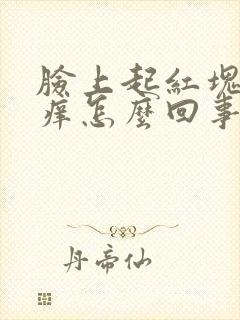 臉上起紅塊
痒怎麼回事
丹帝仙